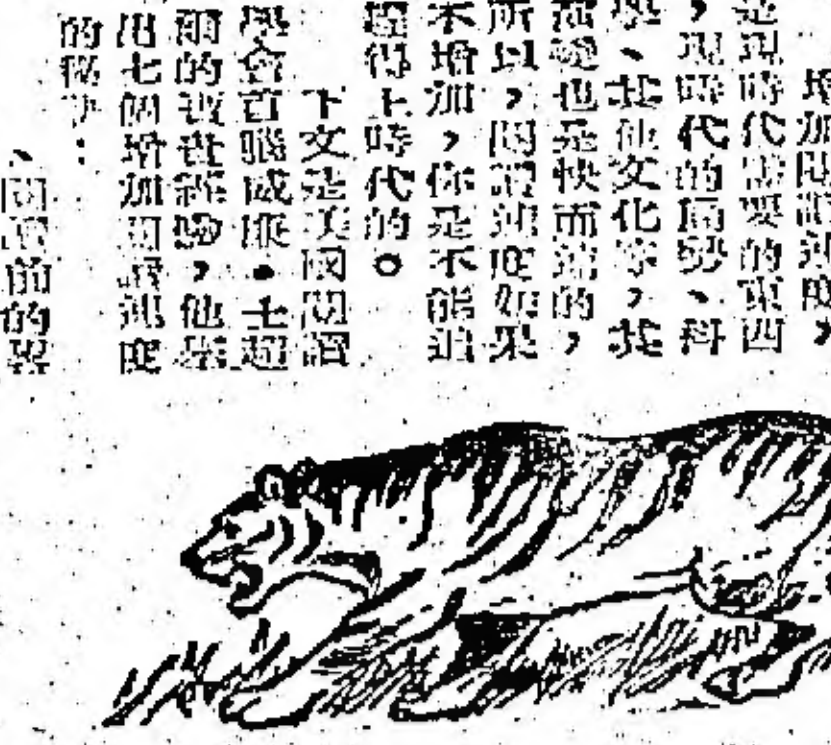 增加閱讀速度，
是現時代需要的東西
，現時代的局勢、科
學、其他文化等，其
演變也是快而新的，
所以，閱讀速度如果
不增加，你是不能追
得上時代的。
下文是美國閱讀
學會首腦威廉·士超
爾的被登經驗，他舉
出七個增加閱讀速度
的秘訣：
、閱讀前的習